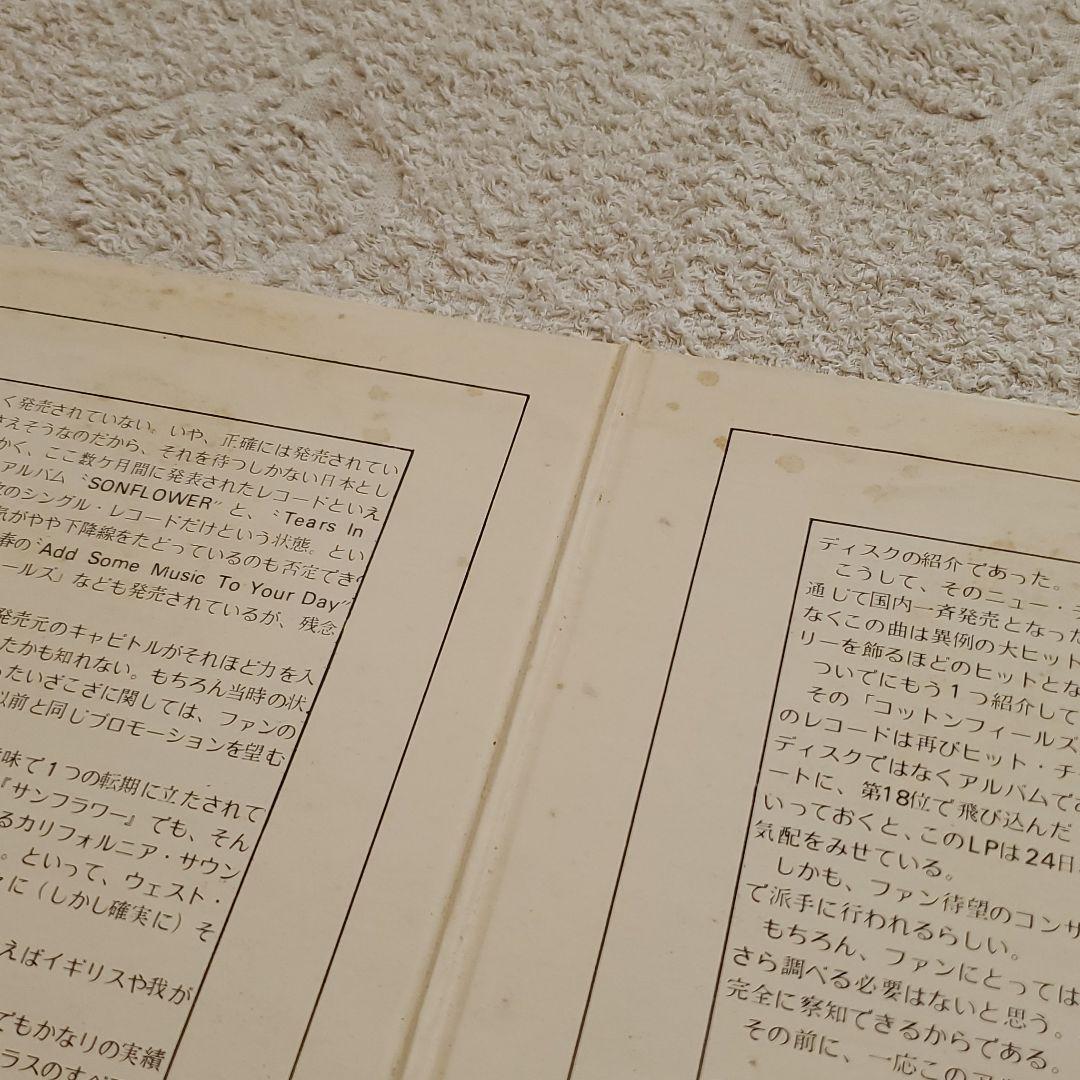 く発売されていない。いや、正確には発売されてい
さえそうなのだから、それを待つしかない日本とし
かく、ここ数ケ月間に発表されたレコードといえ
アルバム〝SONFLOWER〟と、〝Tears In
のシングル・レコードだけという状態。とい
気がやや下降線をたどっているのも否定でき
春の〝Add Some Music To Your Day〟
ールズ」なども発売されているが、残念
発売元のキャピトルがそれほど力を入
たかも知れない。もちろん当時の状
ったいざこざに関しては、ファンの
以前と同じプロモーションを望む
味で1つの転期に立たされて
『サンフラワー』でも、そん
るカリフォルニア・サウン
。といって、ウェスト・
に（しかし確実に）そ
えばイギリスや我が
でもかなりの実績
ラスのすべ
ディスクの紹介であった。
こうして、そのニュー・
通じて国内一斉発売となった
なくこの曲は異例の大ヒット
リーを飾るほどのヒットとな
ついでにもう1つ紹介して
その「コットンフィールズ
のレコードは再びヒット・チ
ディスクではなくアルバムで
ートに、第18位で飛び込んだ
いっておくと、このLPは24日
気配をみせている。
しかも、ファン待望のコンサ
で派手に行われるらしい。
もちろん、ファンにとっては
さら調べる必要はないと思う。
完全に察知できるからである。
その前に、一応この